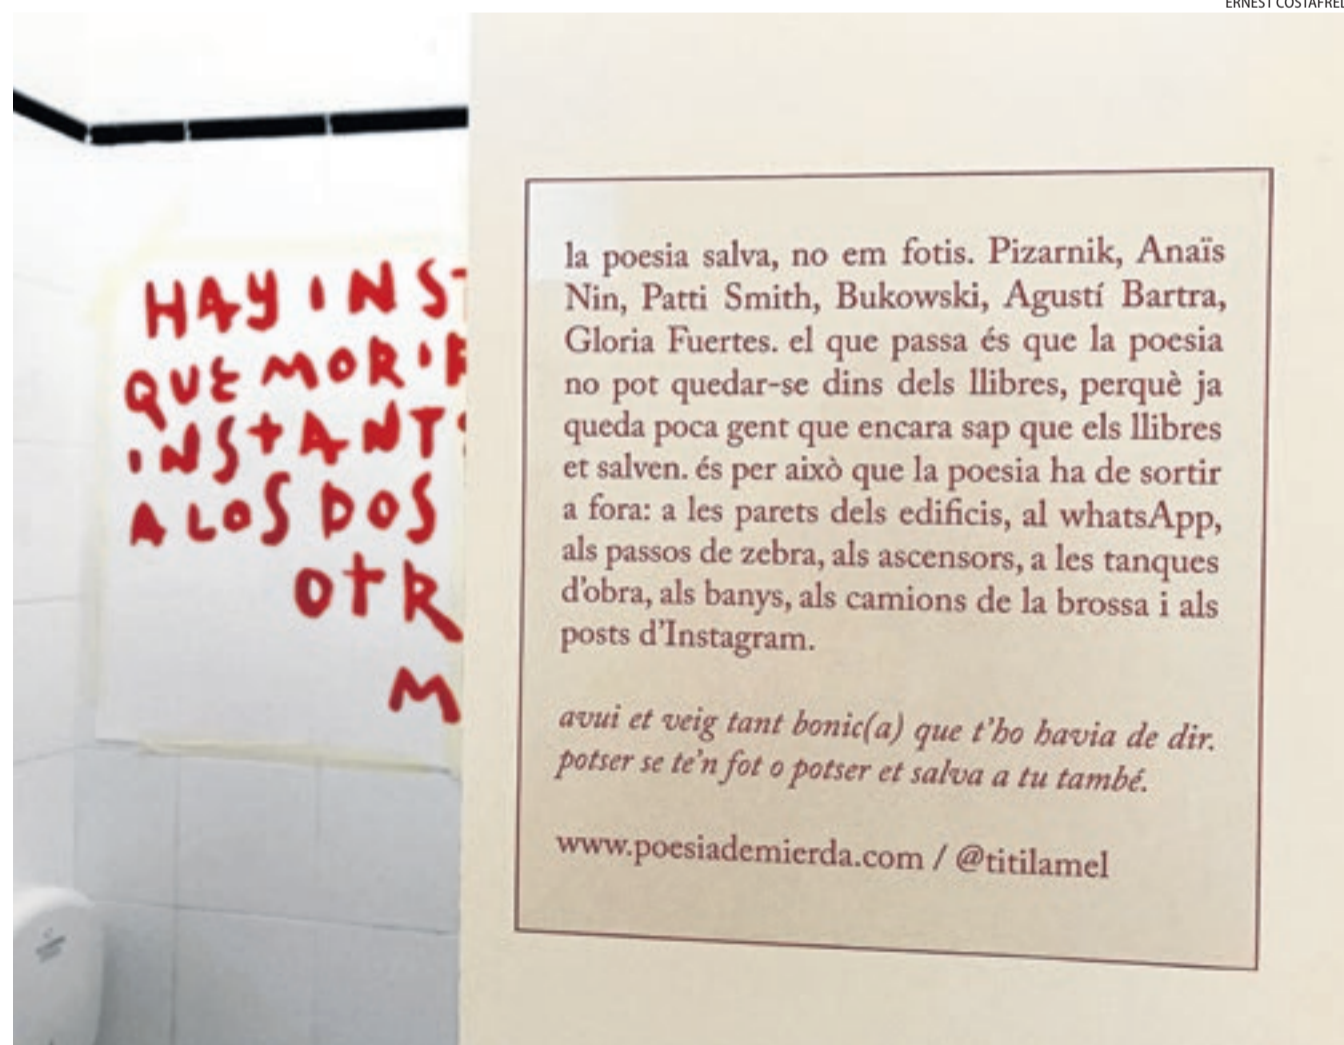 ERNEST COSTAFREL
HAY INST
QUE MORIR
INSTANT
A LOS DOS
OTR
M
la poesia salva, no em fotis. Pizarnik, Anaïs
Nin, Patti Smith, Bukowski, Agustí Bartra,
Gloria Fuertes. el que passa és que la poesia
no pot quedar-se dins dels llibres, perquè ja
queda poca gent que encara sap que els llibres
et salven. és per això que la poesia ha de sortir
a fora: a les parets dels edificis, al whatsApp,
als passos de zebra, als ascensors, a les tanques
d'obra, als banys, als camions de la brossa i als
posts d'Instagram.
avui et veig tant bonic(a) que t'ho havia de dir.
potser se te'n fot o potser et salva a tu també.
www.poesiademierda.com / @titilamel